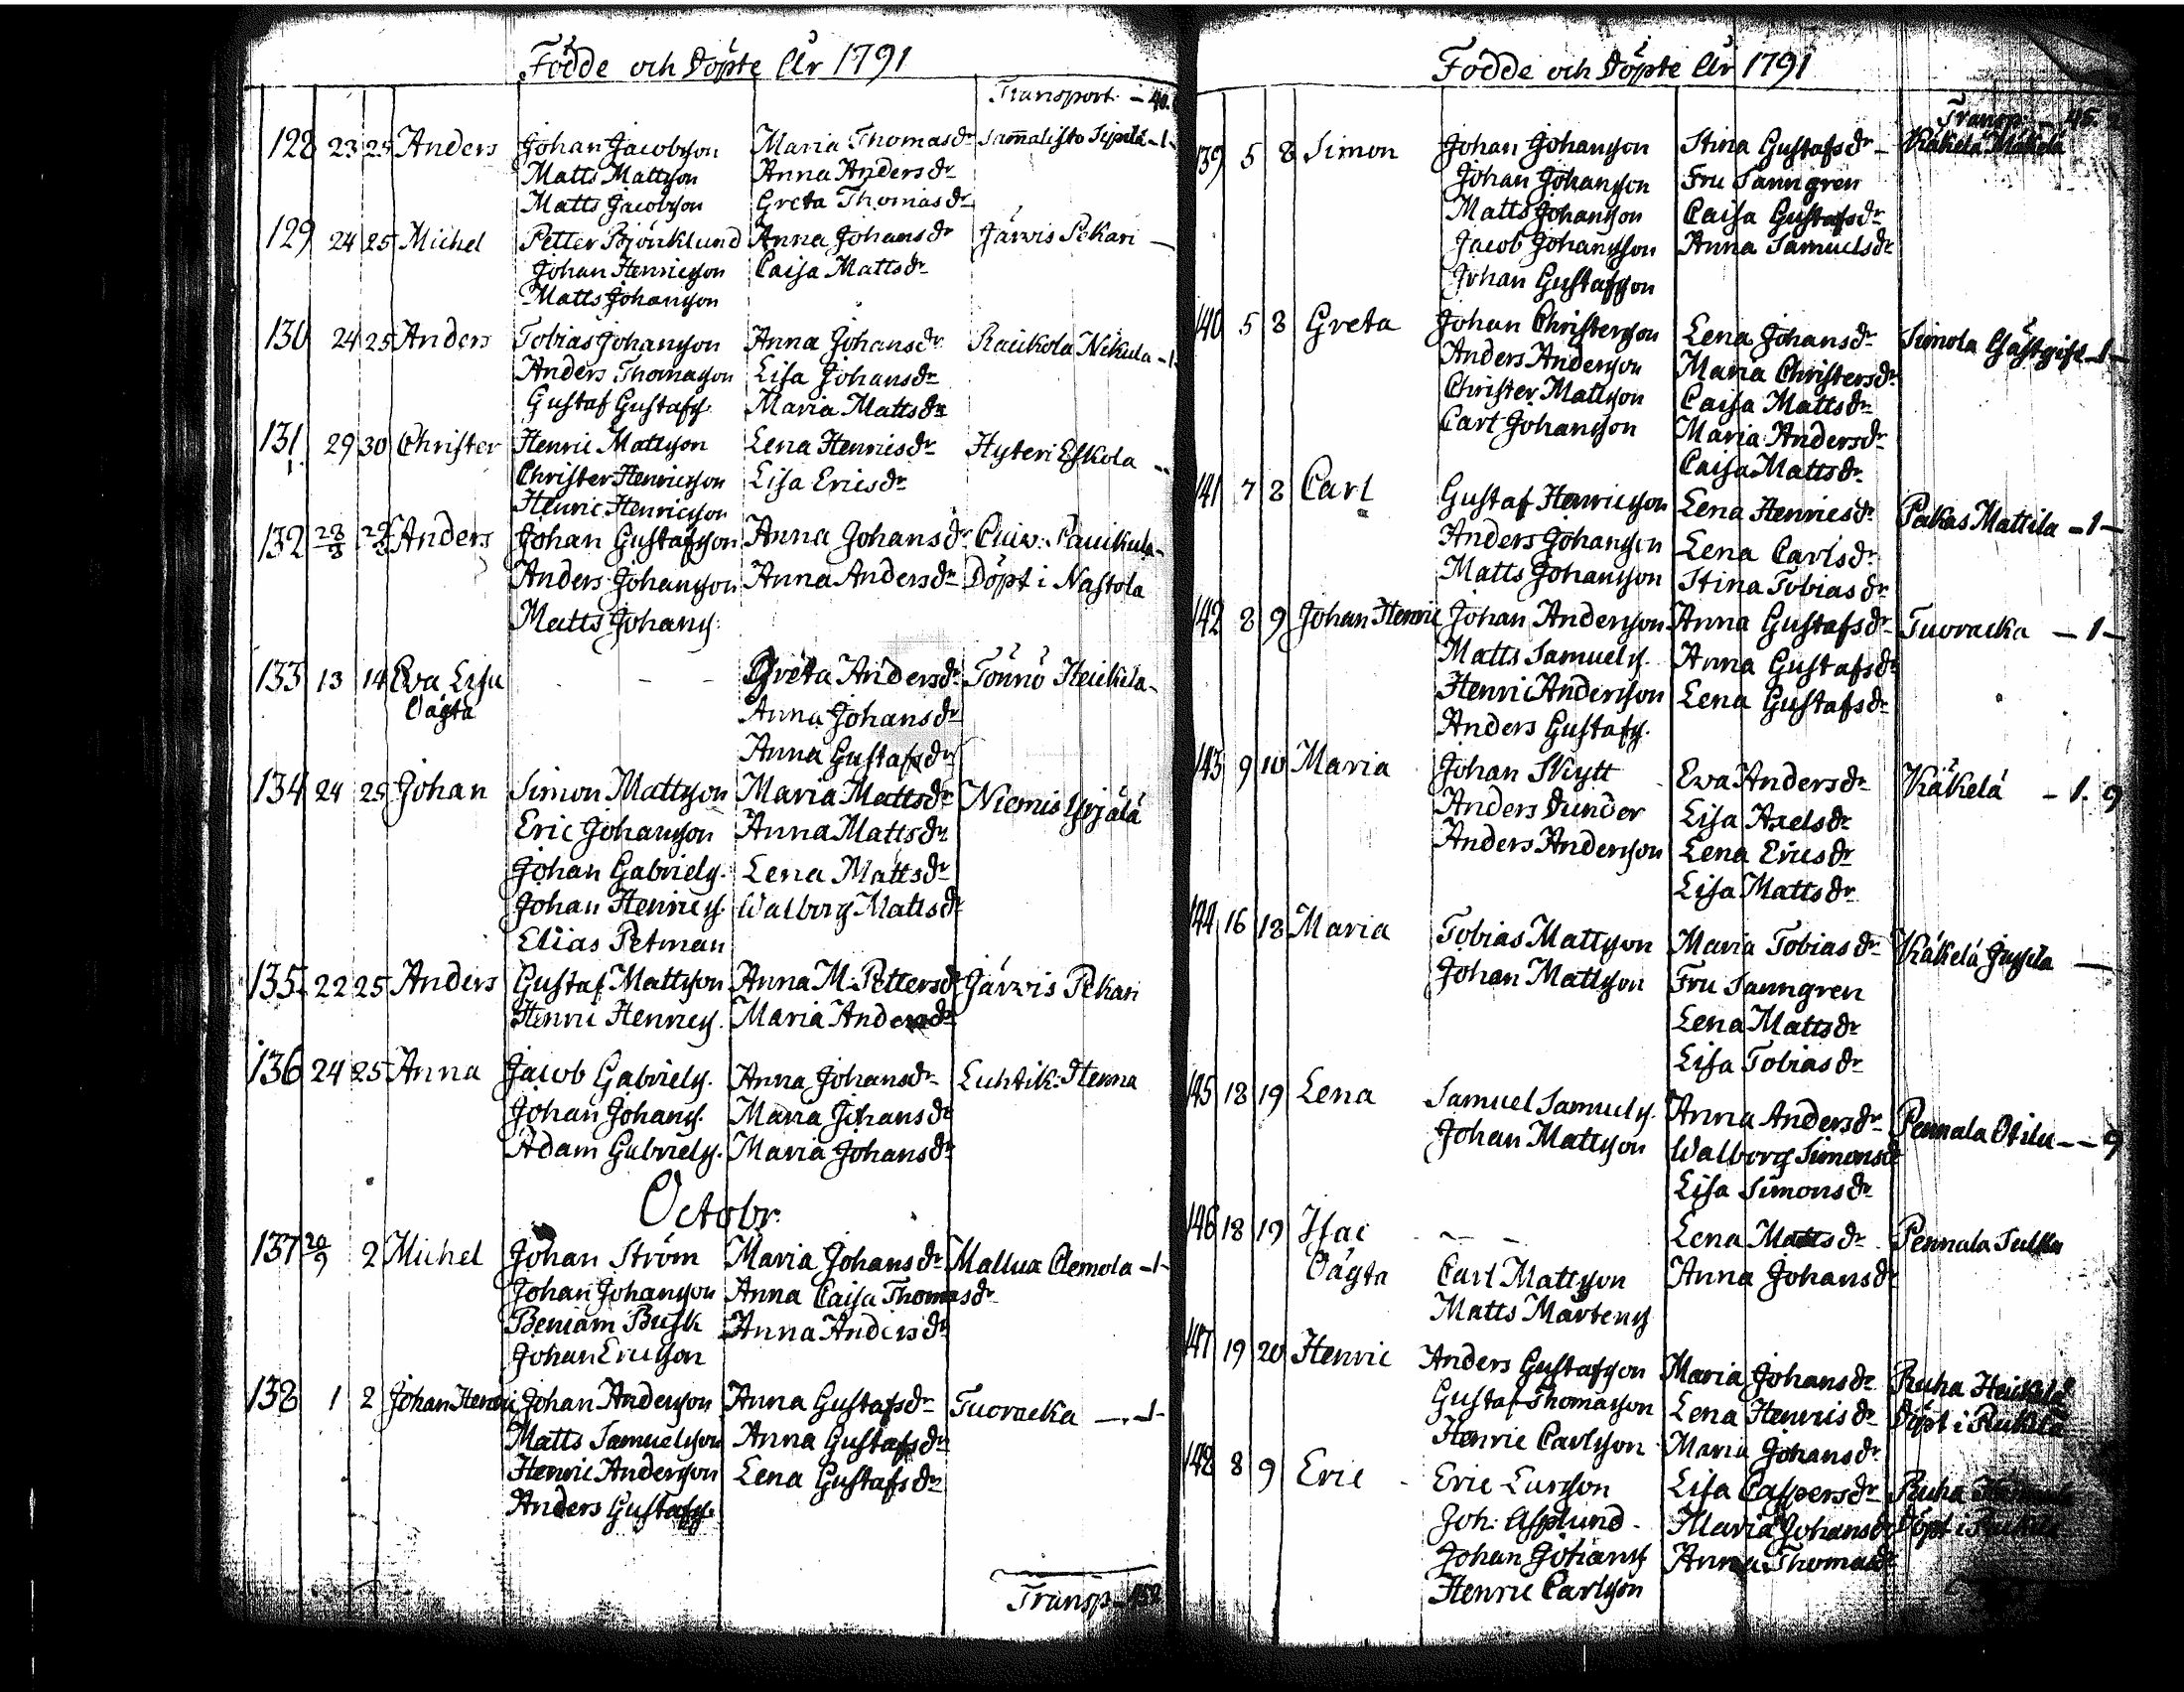 Födde och Döpte År 1791
Transport. – 40.
128 23 25 Anders Johan Jacobsson Maria Thomasdr Sammalisto Sipilä – 1 –
Matts Mattsson Anna Andersdr
Matts Jacobsson Greta Thomasdr
129 24 25 Michel Petter Björcklund Anna Johansdr Järvis Pekari –
Johan Henricsson Caisa Mattsdr
Matts Johansson
130 24 25 Anders Tobias Johansson Anna Johansdr Raikola Nikula – 1
Anders Thomasson Lisa Johansdr
Gustaf Gustafss. Maria Mattsdr
131 29 30 Christer Henric Mattsson Lena Henricsdr Hyteri Eskola –
Christer Henricsson Lisa Ericsdr
Henric Henricsson
132 28/8 Anders Johan Gustafsson Anna Johansdr
Anders Johansson Anna Andersdr Döpt i Nastola
Matts Johanss.
133 13 14 Eva Lisa – – Greta Andersdr Tönnö Heikkilä –
Oägta Anna Johansdr
Anna Gustafsdr
134 24 25 Johan Simon Mattsson Maria Mattsdr Niemis Yrjälä
Eric Johansson Anna Mattsdr
Johan Gabrielss. Lena Mattsdr
Johan Henricss. Walborg Mattsdr
Elias Petman
135 22 25 Anders Gustaf Mattsson Anna M. Pettersdr Järvis Pekari
Henric Henricss. Maria Andersdr
136 24 25 Anna Jacob Gabrielss. Anna Johansdr Luhtik. Henna
Johan Johanss. Maria Johansdr
Adam Gabrielss. Maria Johansdr
Octobr.
137 20/9 2 Michel Johan Ström Maria Johansdr Mallua Clemola – 1 –
Johan Johansson Anna Caisa Thomasdr
Beniam Busk Anna Andersdr
Johan Ericsson
138 1 2 Johan Henric Johan Andersson Anna Gustafsdr Tuoracka – 1 –
Matts Samuelsson Anna Gustafsdr
Henric Andersson Lena Gustafsdr
Anders Gustafss.
Transp –
Födde och Döpte År 1791
Transp – 45.
139 5 8 Simon Johan Johansson Stina Gustafsdr – Käkelä Mäkelä
Johan Johansson Fru Sanngren
Matts Johansson Caisa Gustafsdr
Jacob Johansson Anna Samuelsdr
Johan Gustafsson
140 5 8 Greta Johan Christersson Lena Johansdr Simola Gästgifv – 1 –
Anders Andersson Maria Christersdr
Christer Mattsson Caisa Mattsdr
Carl Johansson Maria Andersdr
Caisa Mattsdr
141 7 8 Carl Gustaf Henricsson Lena Henricsdr Pakas Mattila – 1 –
Anders Johansson Lena Carlsdr
Matts Johansson Stina Tobiasdr
142 8 9 Johan Henric Johan Andersson Anna Gustafsdr Tuoracka – 1 –
Matts Samuelss. Anna Gustafsdr
Henric Andersson Lena Gustafsdr
Anders Gustafss.
143 9 10 Maria Johan Skytt Eva Andersdr Käkelä – 1. 9
Anders Dunder Lisa Axelsdr
Anders Andersson Lena Ericsdr
Lisa Mattsdr
144 16 18 Maria Tobias Mattsson Maria Tobiasdr Käkelä Jussila –
Johan Mattsson Fru Sanngren
Lena Mattsdr
Lisa Tobiasdr
145 18 19 Lena Samuel Samuelss. Anna Andersdr Pennala Otila – – 9
Johan Mattsson Walborg Simonsdr
Lisa Simonsdr
146 18 19 Isac – – Lena Mattsdr Pennala
Oägta Carl Mattsson Anna Johansdr
Matts Mårtenss
147 19 20 Henric Anders Gustafsson Maria Johansdr Ruha Heikkilä
Gustaf Thomasson Lena Henricsdr Döpt i
Henric Carlsson Maria Johansdr
148 8 9 Eric Eric Larsson Lisa Caspersdr Ruha
Joh. Asplund Maria Johansdr Döpt i
Johan Johanss Anna Thomasdr
Henric Carlsson